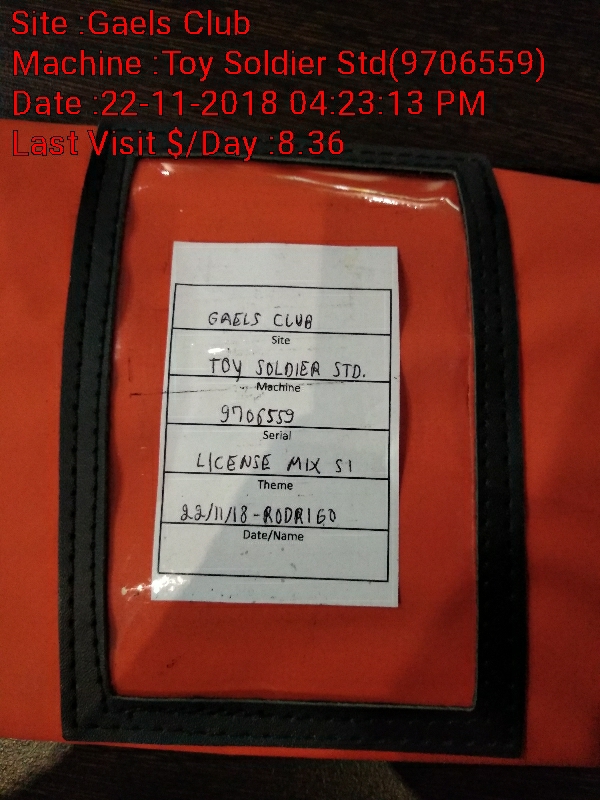 Site :Gaels Club
Machine :Toy Soldier Std(9706559)
Date :22-11-2018 04:23:13 PM
Last Visit $/Day :8.36
GAELS CLUB
Site
TOY SOLDIER STD.
Machine
9706559
Serial
LICENSE MIX S1
Theme
22/11/18-RODRIGO
Date/Name